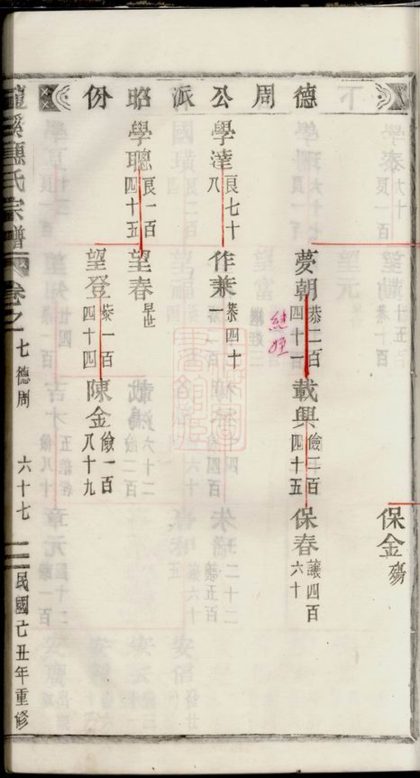 德周公派昭份
保金 殤
夢朝 恭二百四十一 載興 儉三百四十五 保春 讓四百六十
學達 良七十八 作乘 恭四十一
學聰 良一百四十五 望春 早世
望登 恭一百四十四 陳金 儉一百八十九
溪氏宗譜 卷之 七德周 六十七 民國己丑年重修